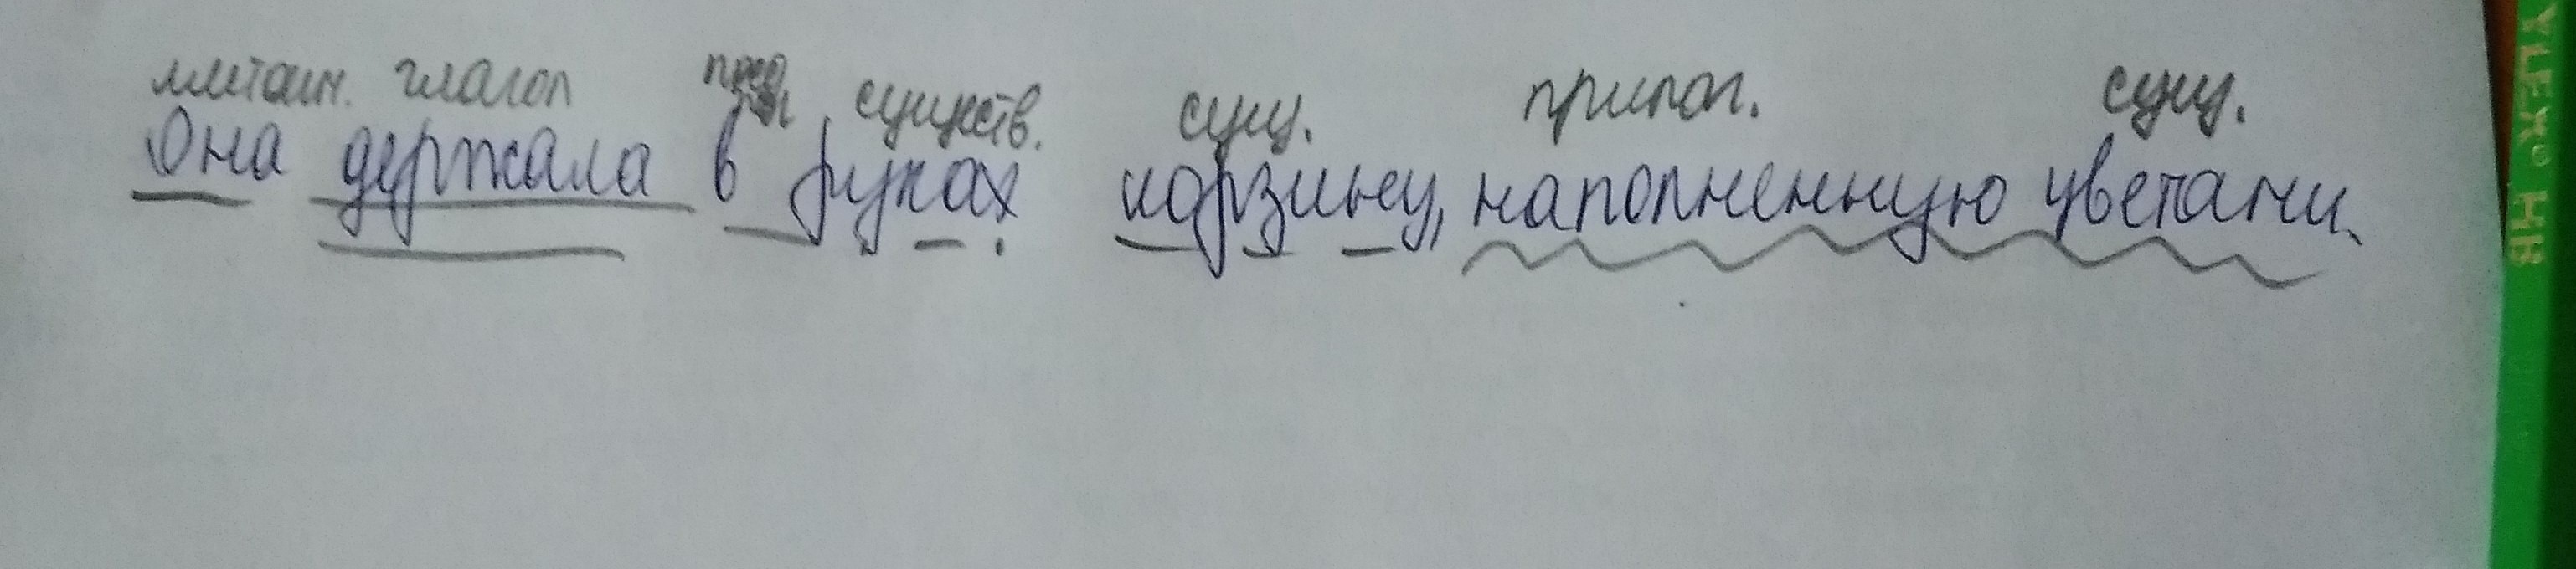 местоим. глагол пред существ. сущ. прилог. сущ.
Она держала в руках корзину, наполненную цветами.
YLEX® HB